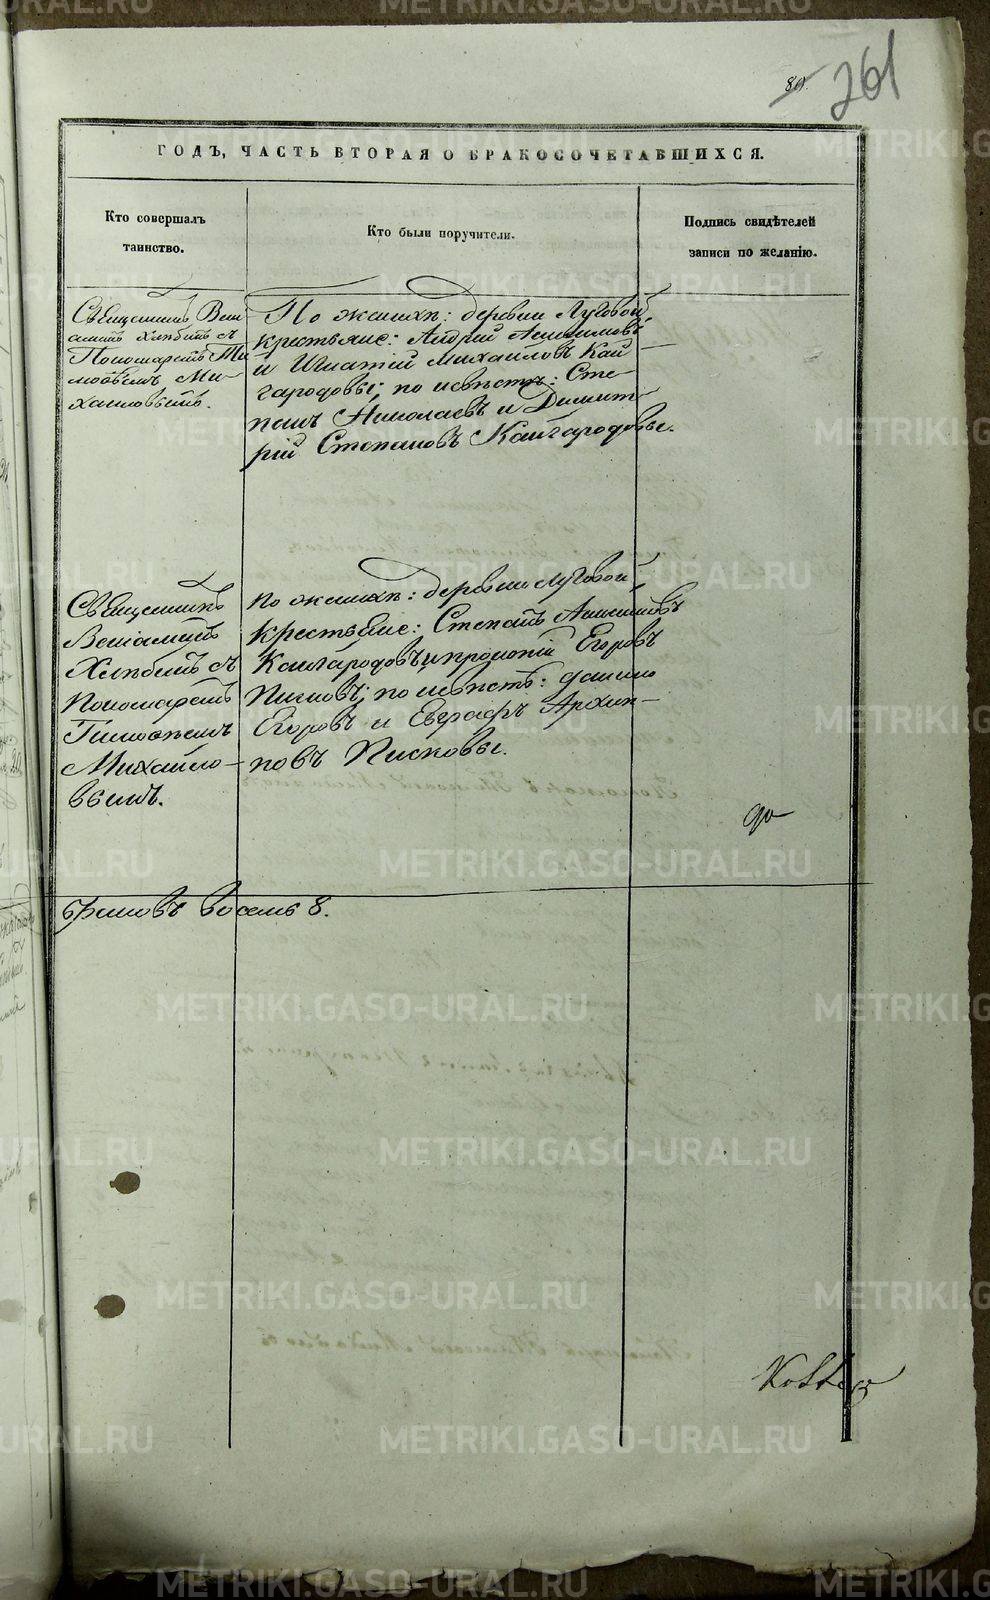 261
ГОДЪ, ЧАСТЬ ВТОРАЯ О БРАКОСОЧЕТАВШИХСЯ.
Кто совершалъ
таинство.
Кто были поручители.
Подпись свидѣтелей
записи по желанію.
Священникъ Вені
аминъ Хлѣбинъ съ
Пономаремъ Ти
моѳеемъ Ми-
хайловымъ.
По женихѣ: деревни Луговой,
крестьяне: Андрей Анисимовъ
и Игнатій Михайловъ Кай
городовы; по невѣстѣ: Сте-
панъ Николаевъ и Димит-
рій Степановъ Кайгородовы.
Священникъ
Веніаминъ
Хлѣбинъ съ
Пономаремъ
Тимоѳеемъ
Михайло-
вымъ.
По женихѣ: деревни Луговой,
крестьяне: Степанъ Анисимовъ
Кайгородовъ и Егоровъ
Писковъ; по невѣстѣ:
Егоровъ и Евграфъ Архип-
повъ Писковы.
до
браковъ восемь 8.
METRIKI.GASO-URAL.RU